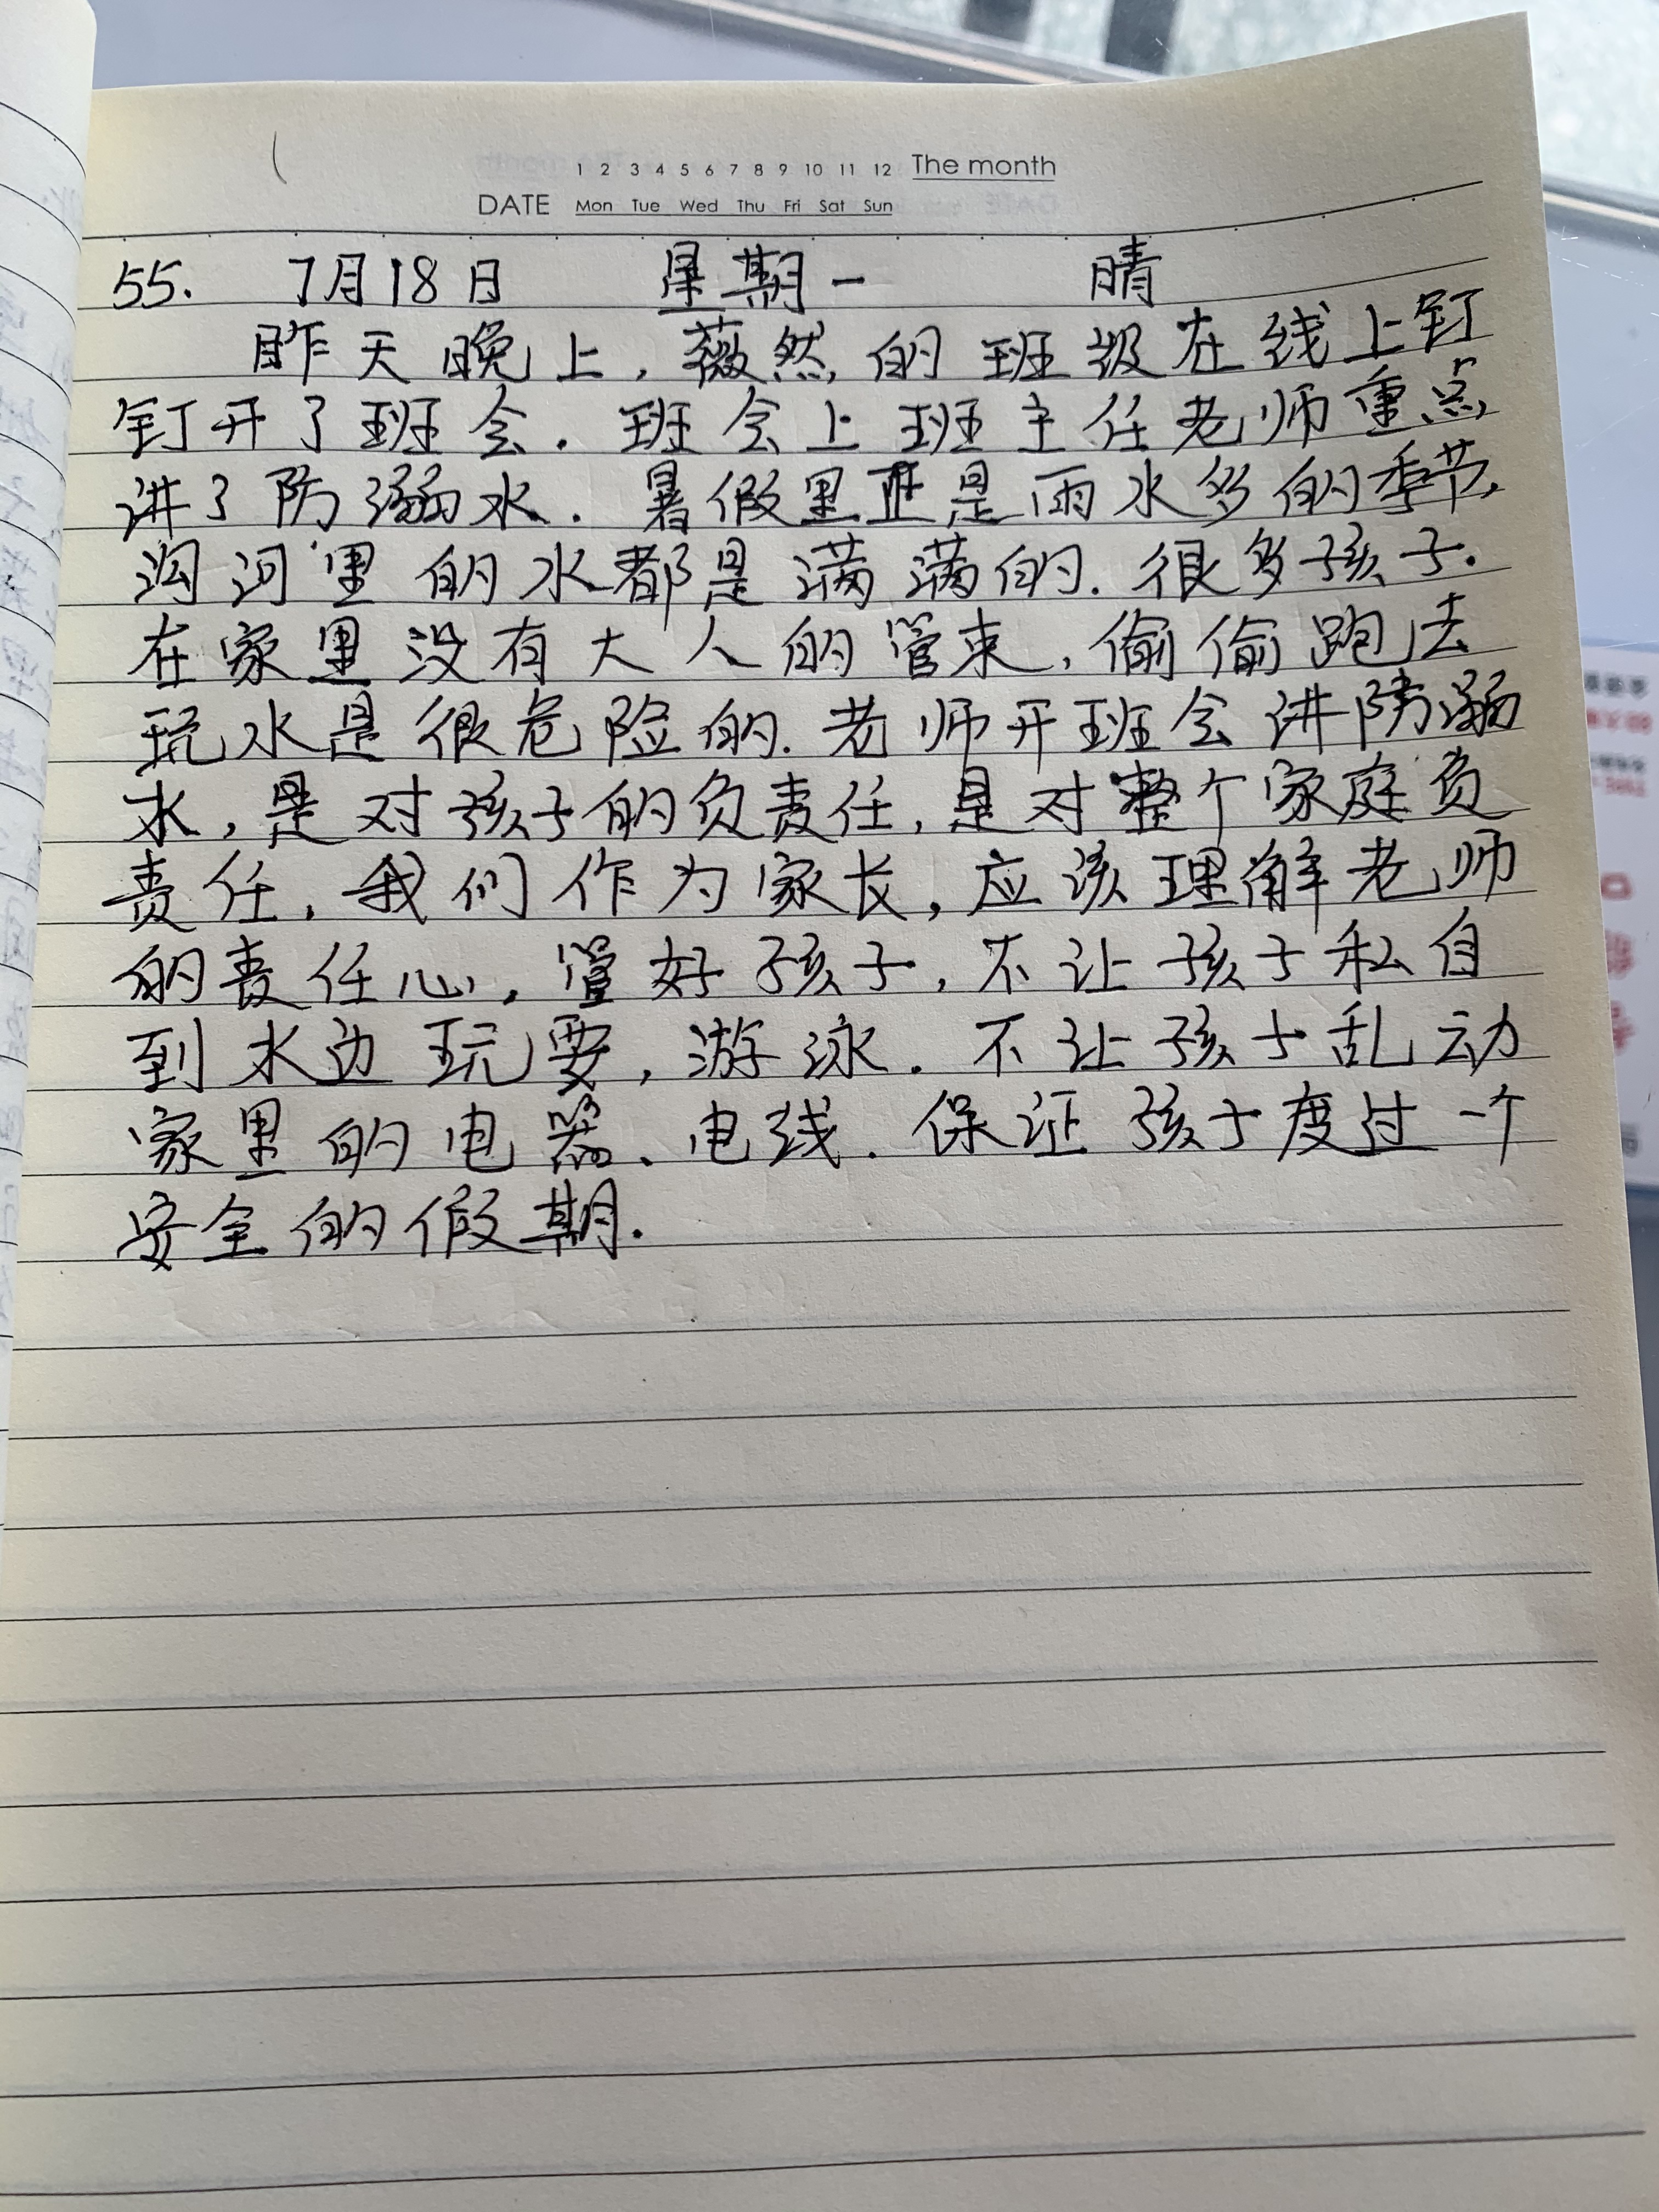 1 2 3 4 5 6 7 8 9 10 11 12 The month
DATE Mon Tue Wed Thu Fri Sat Sun
55. 7月18日 星期一 晴
昨天晚上,薇然的班级在线上钉
钉开了班会.班会上班主任老师重点
讲了防溺水.暑假里正是雨水多的季节,
沟河里的水都是满满的.很多孩子.
在家里没有大人的管束,偷偷跑去
玩水是很危险的.老师开班会讲防溺
水,是对孩子的负责任,是对整个家庭负
责任,我们作为家长,应该理解老师
的责任心,管好孩子,不让孩子私自
到水边玩耍,游泳.不让孩子乱动
家里的电器、电线.保证孩子度过一个
安全的假期.